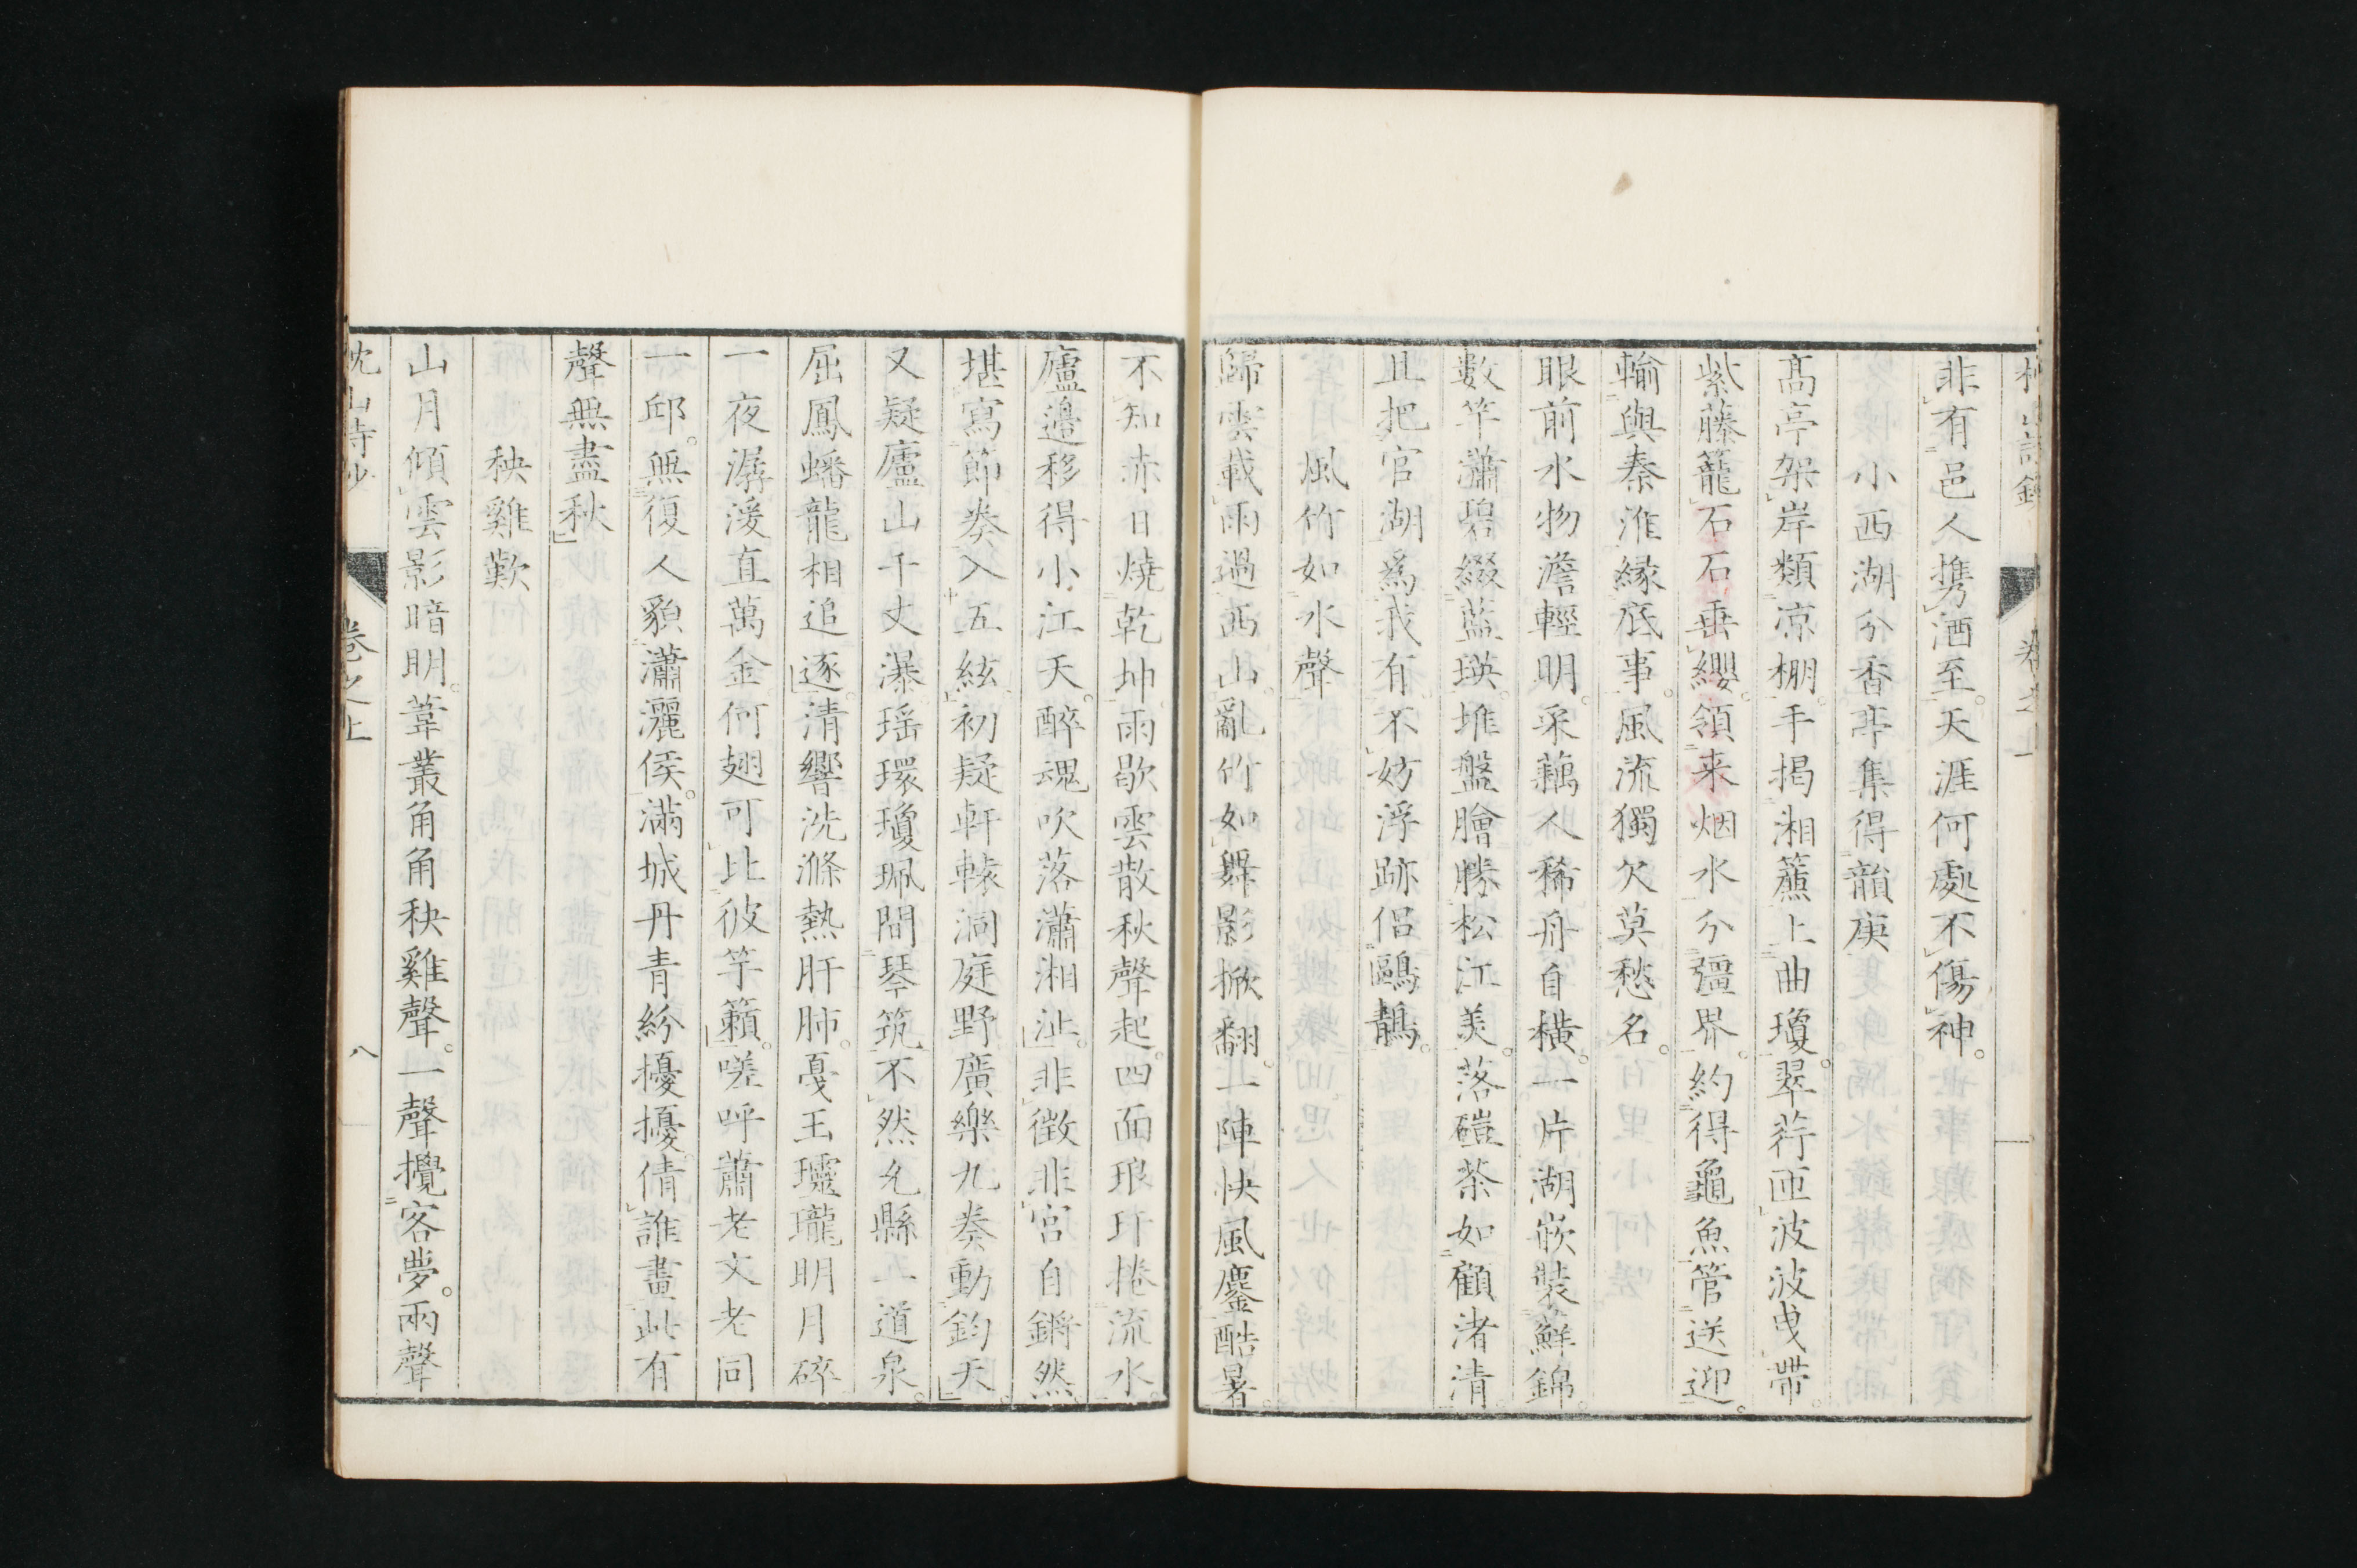 非有邑人携酒至。天涯何處不傷神。
小西湖分香亭集得韻庚
髙亭架岸類凉棚。手揭湘簾上曲瓊。翠荇匝波波曳帶。
紫藤籠石石垂纓。領来烟水分彊界。約得龜魚管送迎。
輸與秦淮縁底事。風流獨欠莫愁名。
眼前水物澹輕明。采藕人稀舟自橫。一片湖嵌裝鮮錦。
數竿瀟碧綴藍瑛。堆盤膾勝松江美。落磑茶如顧渚清。
且把官湖爲我有。不妨浮跡侶鷗鶄。
風竹如水聲
歸雲載雨過西山。亂竹如舞影掀翻。一陣快風鏖酷暑。
不知赤日燒乾坤雨歇雲散秋聲起。四面琅玕捲流水。
廬邉移得小江天。醉魂吹落瀟湘沚。非徴非宮自鏘然。
堪寫節奏入五絃。初疑軒轅洞庭野廣樂九奏動鈞天。
又疑廬山千丈瀑瑶環瓊珮間琴筑不然允縣一道泉。
屈鳳蟠龍相追逐。清響洗滌熱肝肺。戞玉瓏瓏明月碎
一夜潺湲直萬金何翅可比彼竽籟。嗟呼蕭老文老同
一邱。無復人貌瀟灑侯。滿城丹青紛擾擾。倩誰畫此有
聲無盡秋
秧雞歎
山月傾雲影暗明。葦叢角角秧雞聲。一聲攪客夢。兩聲
枕山詩鈔 卷之上 八